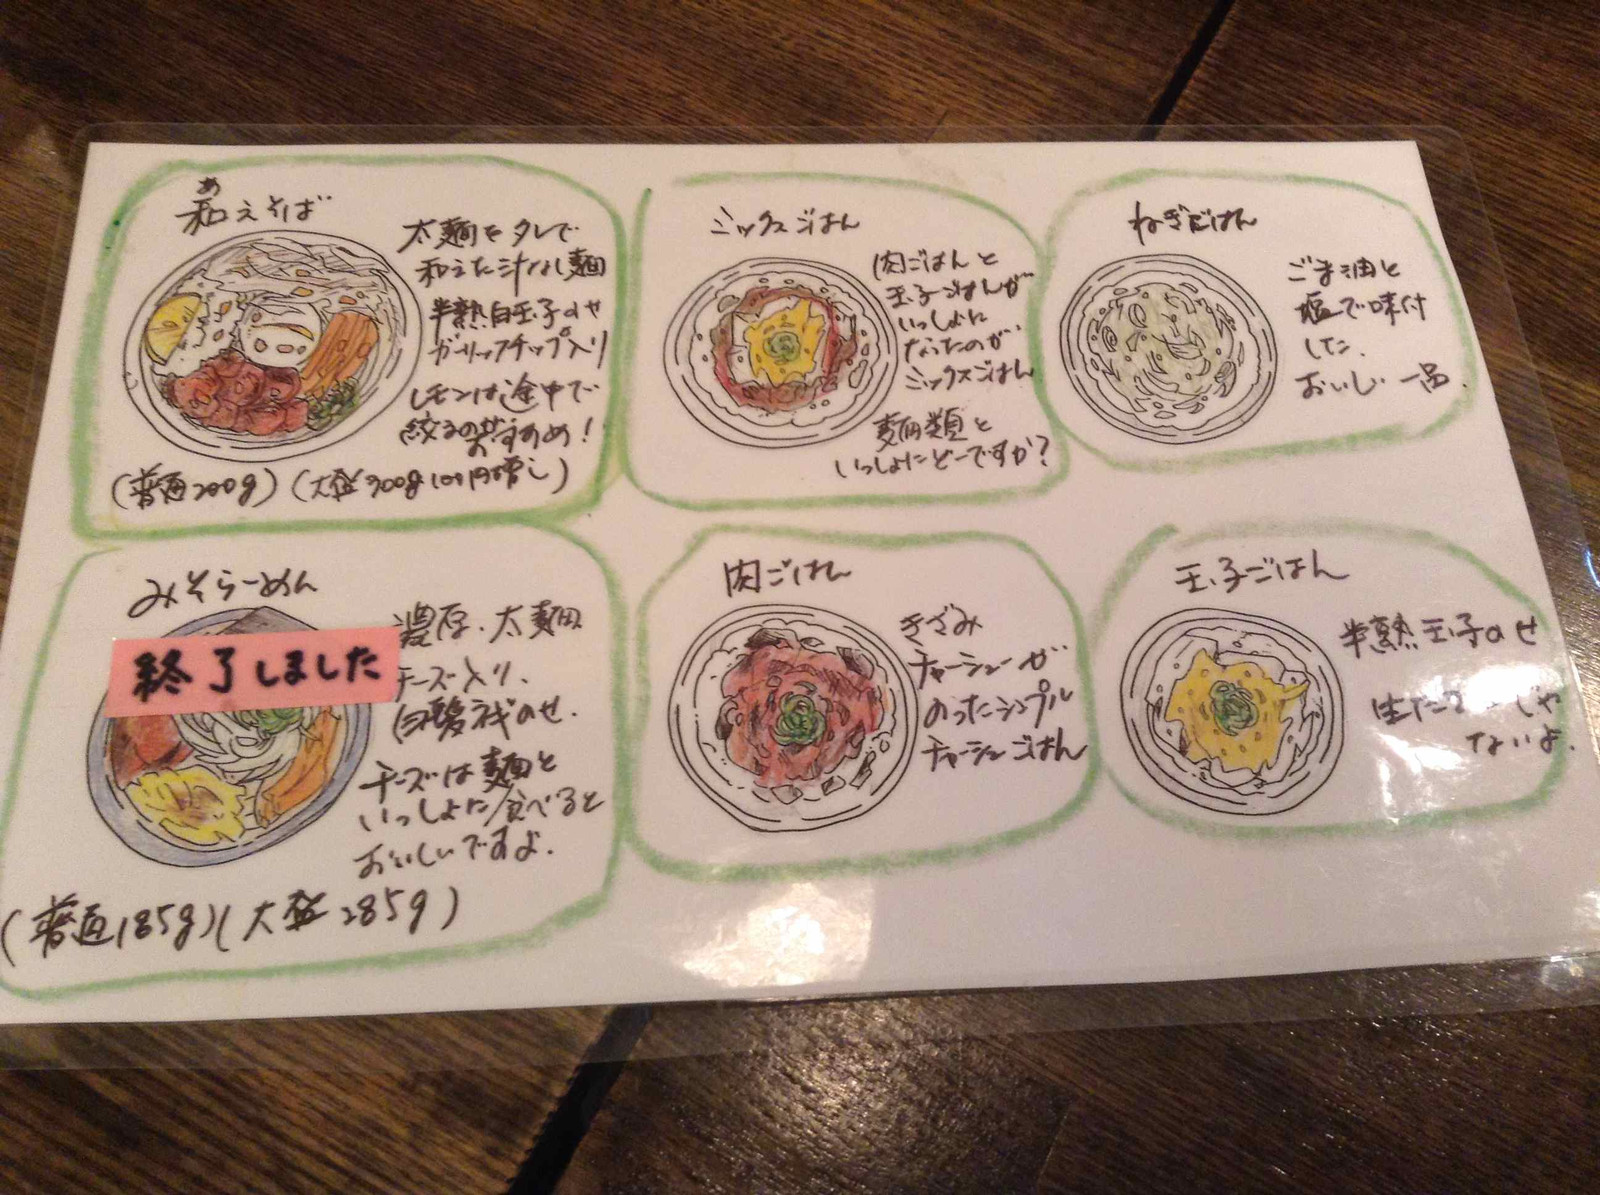 あ
和えそば
太麺をタレで
和えた汁なし麺
半熟白玉子のせ
ガーリックチップ入り
レモンは途中で
絞るのがおすすめ!
(普通200g)(大盛300g100円増し)
ミックスごはん
肉ごはんと
玉子ごはんが
いっしょに
なったのが、
ミックスごはん
麺類と
いっしょにどーですか?
ねぎごはん
ごま油と
塩で味付
した、
おいしい一品.
みそらーめん
終了しました
濃厚、太麺
チーズ入り、
白髪ネギのせ.
チーズは麺と
いっしょに食べると
おいしいですよ.
(普通185g)(大盛285g)
肉ごはん
きざみ
チャーシューが
のったシンプル
チャーシューごはん
玉子ごはん
半熟玉子のせ
じゃ
ないよ.